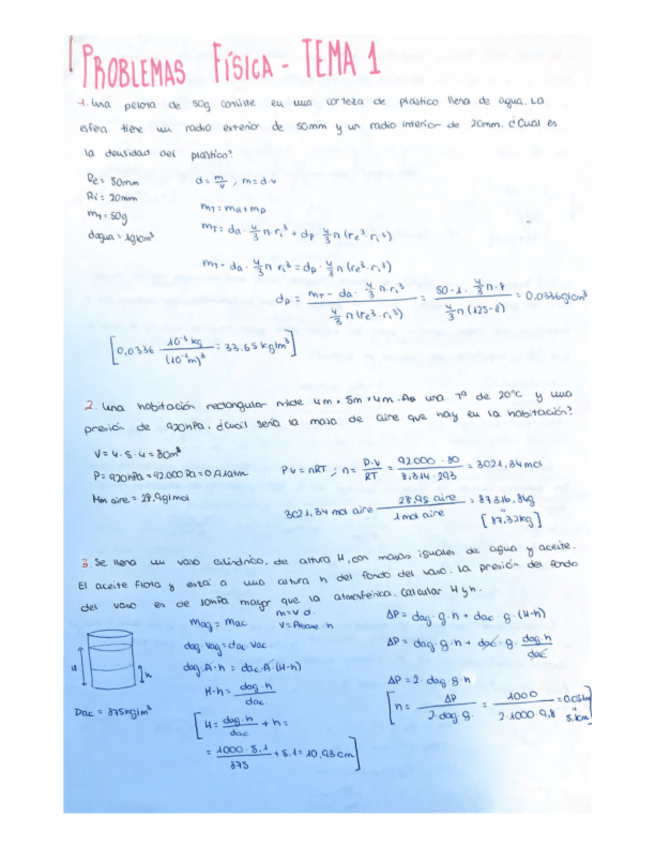 PROBLEMAS FÍSICA - TEMA 1
1. Una pelota de 50g consiste en una corteza de plástico llena de agua. La
esfera tiene un radio exterior de 50mm y un radio interior de 20mm. ¿Cual es
la densidad del plástico?
Re= 50mm
Ri = 20mm
mT = 50g
dagua = 1g/cm³
d = m/v , m = d·v
mT = ma + mp
mT = da · 4/3 π · ri³ + dp · 4/3 π (re³ - ri³)
mT - da · 4/3 π · ri³ = dp · 4/3 π (re³ - ri³)
dp = (mT - da · 4/3 π · ri³) / (4/3 π (re³ - ri³)) = (50 - 1 · 4/3 π · 8) / (4/3 π (125 - 8)) = 0.0336g/cm³
[0,0336 10⁻³ kg / (10⁻²m)³ = 33,65 kg/m³]
2. Una habitación rectangular mide 4m × 5m × 4m. A una Tª de 20ºC y una
presión de 920hPa. ¿Cuál sería la masa de aire que hay en la habitación?
V = 4 · 5 · 4 = 80m³
P = 920hPa = 92.000 Pa = 0,91atm
Mm aire = 28,9g/mol
PV = nRT ; n = P·V / RT = 92000 · 80 / 8,314 · 293 = 3021,34 mol
3021,34 mol aire 28,9g aire / 1 mol aire = 87316,84g
[87,32kg]
3. Se llena un vaso cilíndrico, de altura H, con masas iguales de agua y aceite.
El aceite flota y está a una altura h del fondo del vaso. La presión del fondo
del vaso es de 10hPa mayor que la atmosférica. Calcular H y h.
m = V · d
V = Abase · h
mag = mac
dag · Vag = dac · Vac
dag · A · h = dac · A · (H-h)
H-h = dag · h / dac
[H = dag · h / dac + h =
= 1000 · 5,1 / 875 + 5,1 = 10,93 cm]
H
h
Dac = 875kg/m³
ΔP = dag · g · h + dac · g · (H-h)
ΔP = dag · g · h + dac · g · dag · h / dac
ΔP = 2 · dag · g · h
[h = ΔP / 2 · dag · g = 1000 / 2 · 1000 · 9,8 = 0.051m
5.1cm]